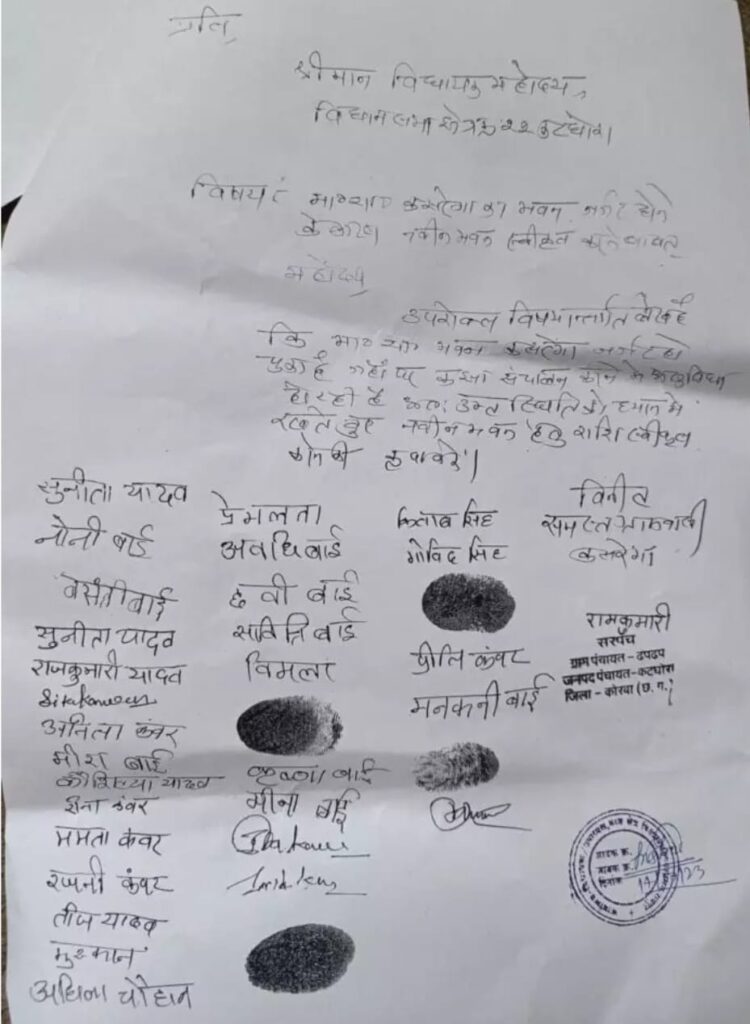 प्रति,
श्रीमान विधायक महोदय,
विधानसभा क्षेत्र क्र. २२ कटघोरा
विषय: मा०शा० कसरेंगा का भवन जर्जर होने
के कारण नवीन भवन स्वीकृत करने बाबत्
महोदय,
उपरोक्त विषयान्तर्गत लेख है
कि मा० शा० भवन कसरेंगा जर्जर हो
चुका है जहाँ पर कक्षा संचालन करने में असुविधा
हो रही है अतः उक्त स्थिति को ध्यान में
रखते हुए नवीन भवन हेतु राशि स्वीकृत
करने की कृपा करें।
विनीत
समस्त ग्रामवासी
कसरेंगा
सुनीता यादव
नोनी बाई
बसंती बाई
सुनीता यादव
राजकुमारी यादव
Sitakanwar
अनिता कंवर
मीरा बाई
कौशिल्या यादव
ममता कंवर
रजनी कंवर
तीज यादव
मुस्कान
चौहान
प्रेमलता
अवधि बाई
छवी बाई
सावित्रि बाई
विमला
कृष्णा बाई
मीना बाई
किताब सिंह
गोविंद सिंह
प्रीति कंवर
मनकनी बाई
रामकुमारी
सरपंच
ग्राम पंचायत - ढपढप
जनपद पंचायत - कटघोरा
जिला - कोरबा (छ. ग.)
आवक क्र.
जावक क्र.
दिनांक